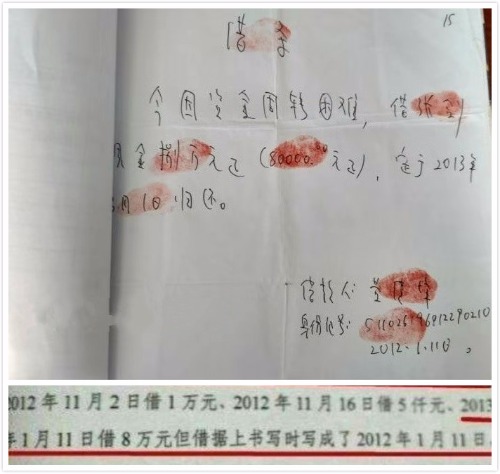 15
借条
今因资金周转困难，借
现金捌万元正（80000.00元正），定于2013年
月1日归还。
借款人：
身份证号：
2012.1.11日。
2012年11月2日借1万元、2012年11月16日借5仟元、2013
年1月11日借8万元但借据上书写时写成了2012年1月11日。